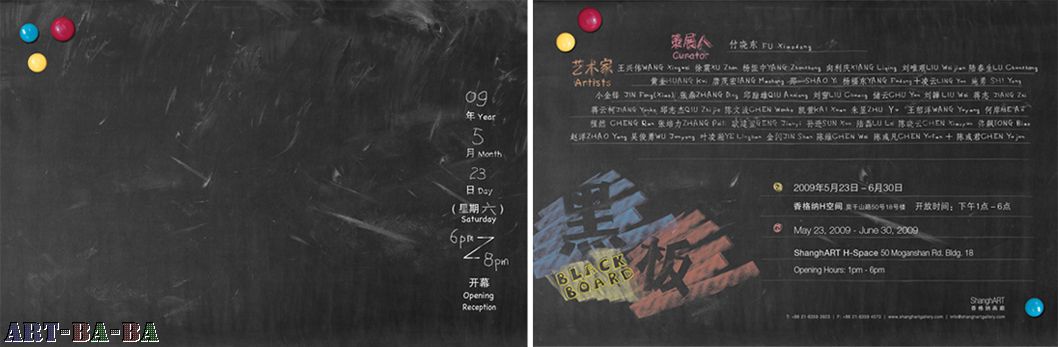 09
年 Year
5
月 Month
23
日 Day
(星期六)
Saturday
6pm
8pm
开幕
Opening
Reception
ART-BA-BA
策展人 付晓东 FU Xiaodong
Curator
艺术家
Artists
王兴伟WANG Xingwei 徐震XU Zhen 杨振中YANG Zhenzhong 向利庆XIANG Liqing 刘唯艰LIU Weijian 陆春生LU Chunsheng
黄奎HUANG Kui 唐茂宏TANG Maohong 邵一SHAO Yi 杨福东YANG Fudong 十凌云LING Yun 施勇 SHI Yong
小金锋 JIN Feng(Xiao) 张鼎ZHANG Ding 邱黯雄QIU Anxiong 储云CHU Yun 刘韡LIU Wei 蒋志 JIANG Zhi
邱志杰QIU Zhijie 陈文波CHEN Wenbo 凯萱KAI Xuan 朱昱ZHU Yu 何岸HE An
程然 CHENG Ran 张培力ZHANG Peili 耿建翌GENG Jianyi 孙逊SUN Xun 陆磊LU Lei 陈晓云CHEN Xiaoyun
赵洋ZHAO Yang 吴俊勇WU Junyong 叶凌瀚YE Linghan 金闪JIN Shan 陈维CHEN Wei 陈彧凡CHEN Yufan + 陈彧君CHEN Yujun
黑板
BLACK
BOARD
2009年5月23日 – 6月30日
香格纳H空间 莫干山路50号18号楼 开放时间:下午1点 – 6点
May 23, 2009 - June 30, 2009
ShanghART H-Space 50 Moganshan Rd. Bldg. 18
Opening Hours: 1pm - 6pm
ShanghART
香格纳画廊
www.shanghartgallery.com | info@shanghartgallery.com